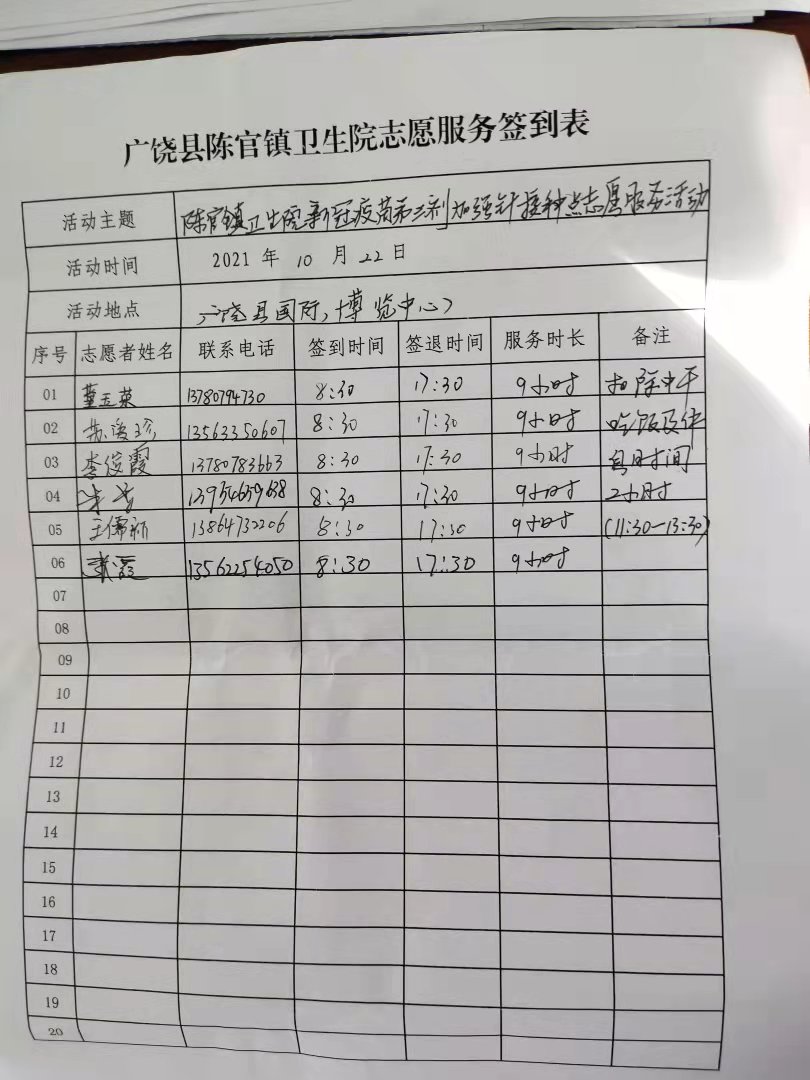 广饶县陈官镇卫生院志愿服务签到表
活动主题 陈官镇卫生院新冠疫苗第三剂加强针接种点志愿服务活动
活动时间 2021 年 10 月 22 日
活动地点 广饶县国际博览中心
序号 志愿者姓名 联系电话 签到时间 签退时间 服务时长 备注
01 董玉荣 13780794730 8:30 17:30 9小时 扣除中午
02 13563350607 8:30 17:30 9小时 吃饭及休
03 李俊霞 13780783663 8:30 17:30 9小时 息时间
04 13954659638 8:30 17:30 9小时 2小时
05 王儒新 13864732206 8:30 17:30 9小时 (11:30-13:30)
06 13562254050 8:30 17:30 9小时
07
08
09
10
11
12
13
14
15
16
17
18
19
20